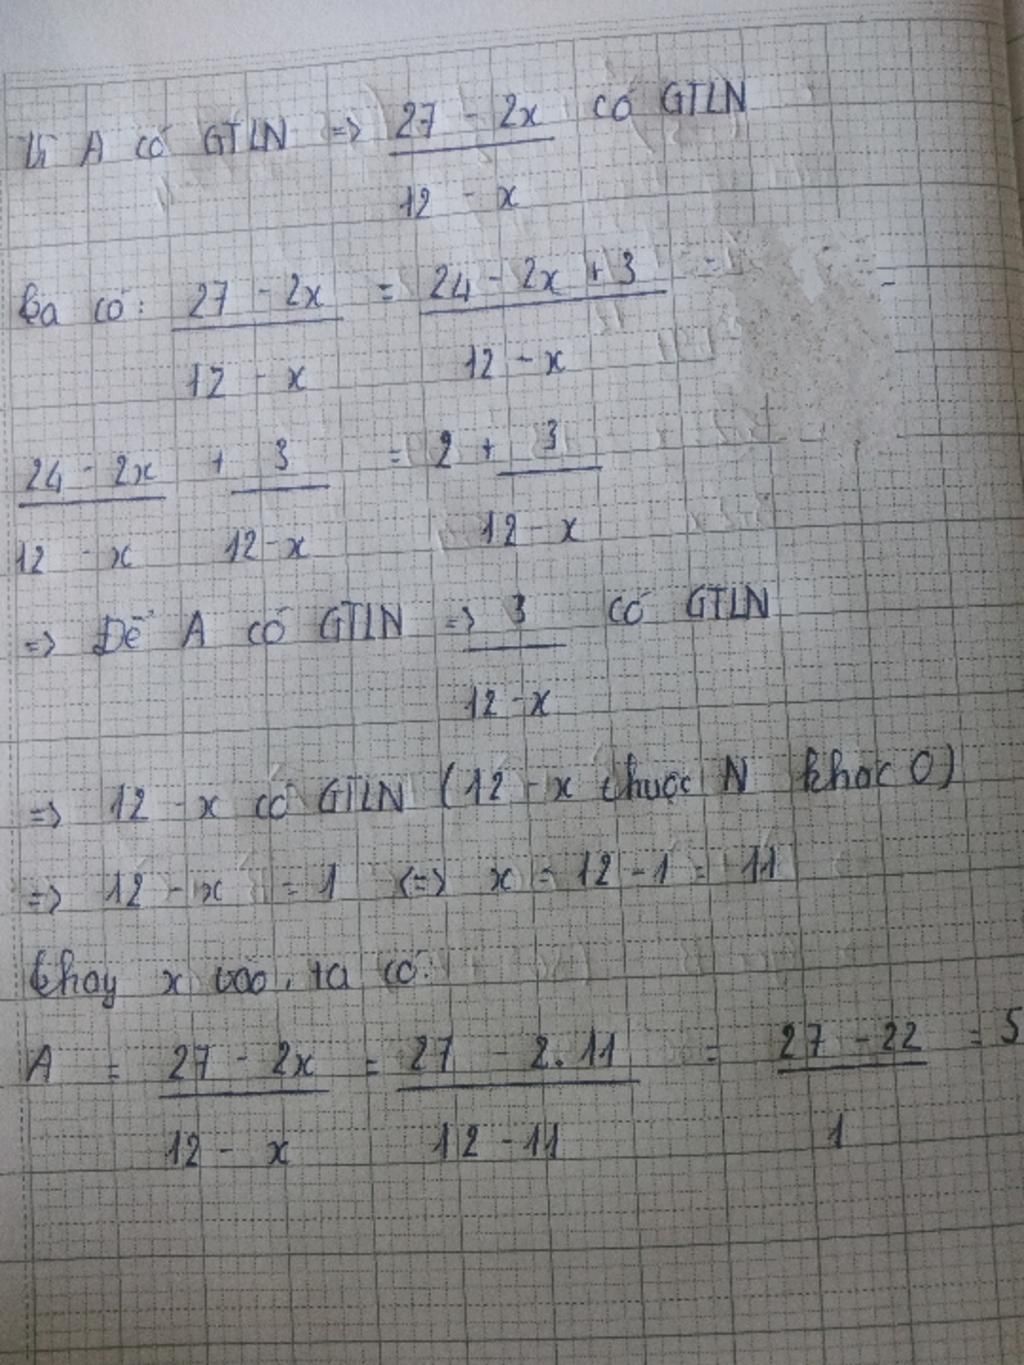 Vì A có GTLN => 27 - 2x có GTLN
12 - x
Ta có: 27 - 2x = 24 - 2x + 3 =
12 - x 12 - x
24 - 2x + 3 = 2 + 3
12 - x 12 - x 12 - x
=> Để A có GTLN => 3 có GTLN
12 - x
=> 12 - x có GTLN (12 - x thuộc N khác 0)
=> 12 - x = 1 <=> x = 12 - 1 = 11
Thay x vào, ta có:
A = 27 - 2x = 27 - 2.11 = 27 - 22 = 5
12 - x 12 - 11 1